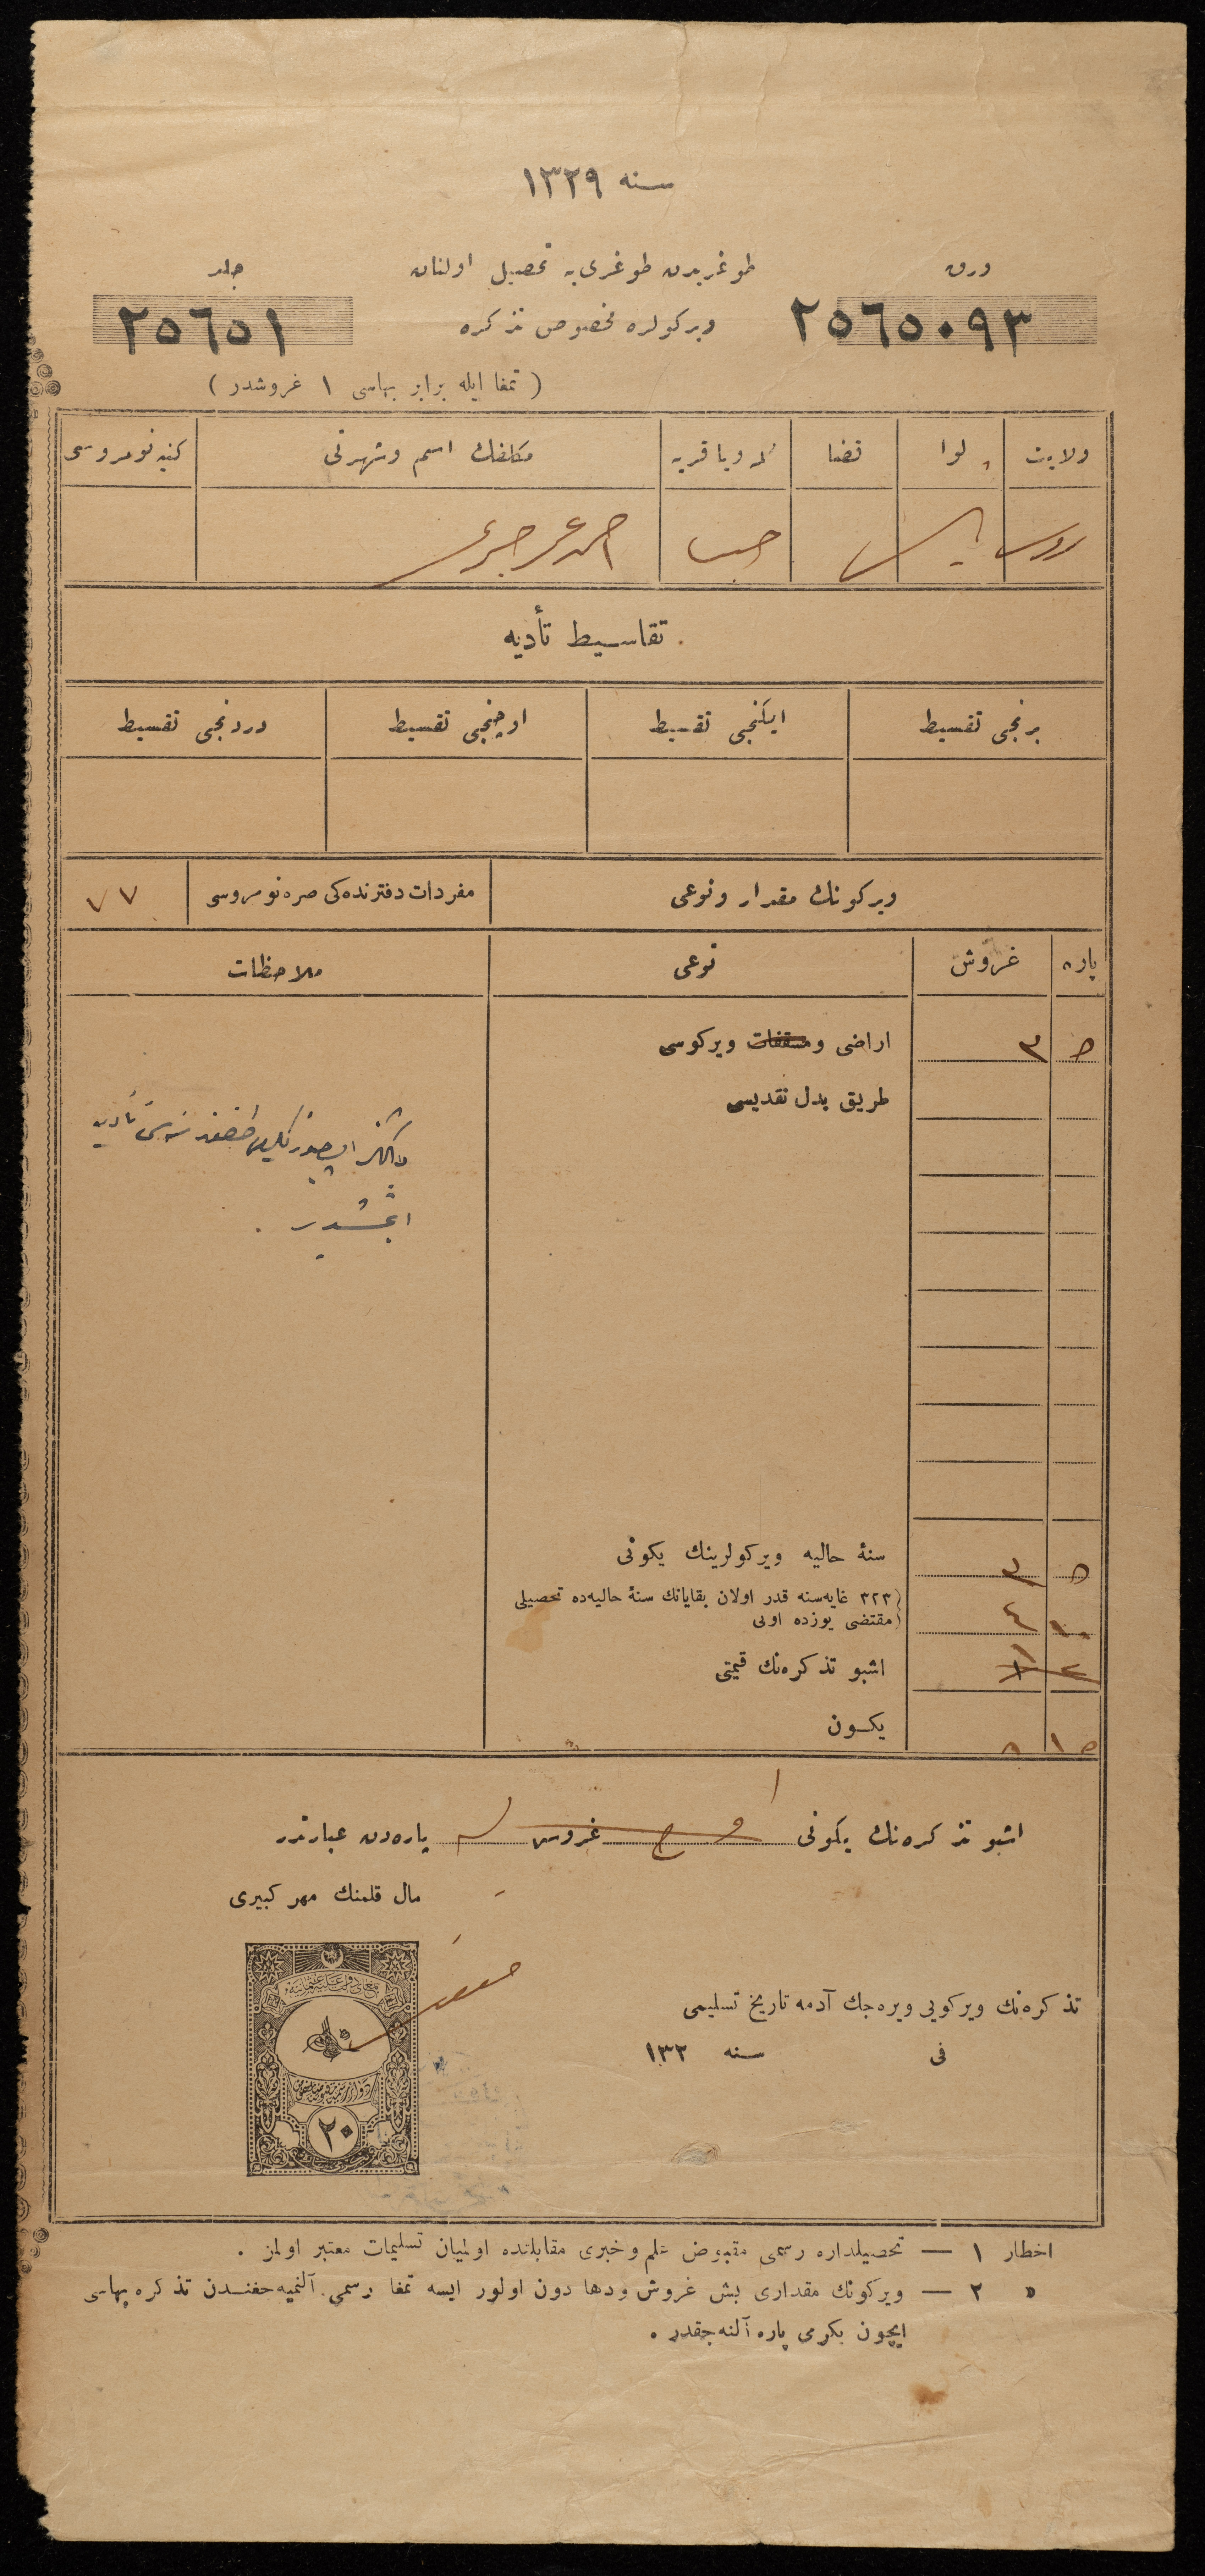 سنه ١٣٢٩
ورق
طوغریدن طوغری یه تحصیل اولنان
جلد
٢٥٦٥٠٩٣
ویرکولره مخصوص تذکره
٢٥٦٥١
( تمغا ایله برابر بهاسی ١ غروشدر )
ولایت لوا قضا محله ویا قریه مکلفك اسم وشهرتی کنیه نومروسی
تقاسیط تأدیه
برنجی تقسیط ایکنجی تقسیط اوچنجی تقسیط دردنجی تقسیط
ویرکونك مقدار ونوعی مفردات دفترنده کی صره نومروسی ٧٧
پاره غروش نوعی ملاحظات
٥ ٣ اراضی ومسقفات ویرکوسی
طریق بدل نقدیسی
ایتمشدر .
٥ ٣ سنۀ حالیه ویرکولرینك یکونی
٣٢٣ غایه سنه قدر اولان بقایانك سنۀ حالیه ده تحصیلی
١٠ ٤ مقتضی یوزده اونی
اشبو تذکره نك قیمتی
١٥ ٨ یکون
اشبو تذکره نك یکونی غروش پاره دن عبارتدر
مال قلمنك مهر کبیری
تذکره نك ویرکویی ویره جك آدمه تاریخ تسلیمی
فی سنه ١٣٢
٢٠
اخطار ١ — تحصیلداره رسمی مقبوض علم وخبری مقابلنده اولمیان تسلیمات معتبر اولمز .
» ٢ — ویرکونك مقداری بش غروش ودها دون اولور ایسه تمغا رسمی آلنمیه جغندن تذکره بهاسی
ایچون یکرمی پاره آلنه جقدر .